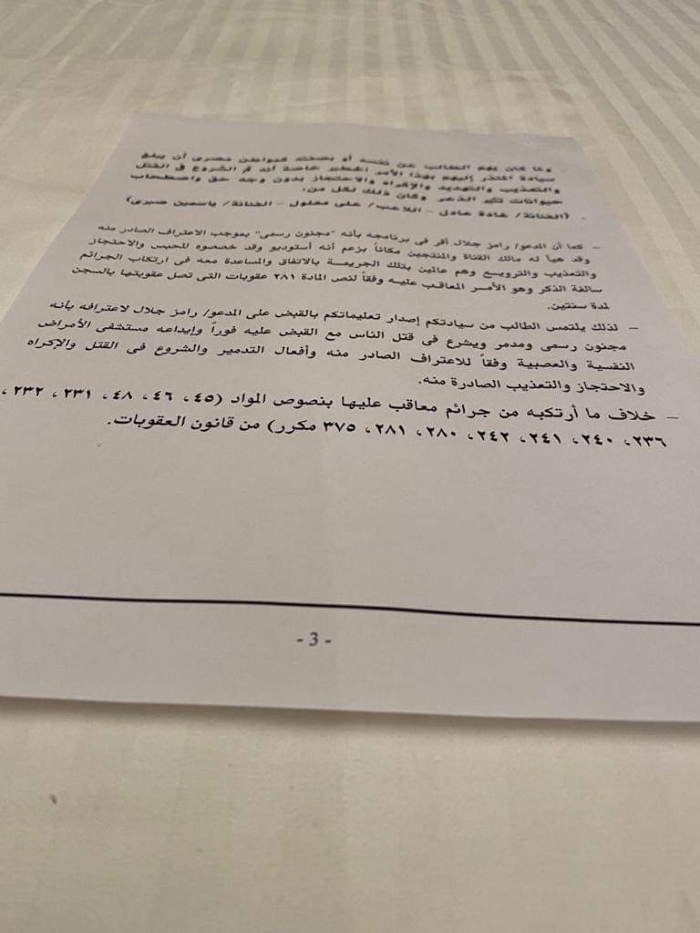 - وما كان يهم الطالب عن نفسه أو بصفته كمواطن مصرى أن يبلغ
سيادة المقدر إليهم بهذا الأمر الخطير خاصة أنه تم الشروع فى القتل
والتعذيب والتهديد والإكراه والاحتجاز بدون وجه حق واصطحاب
حيوانات تثير الذعر وكان ذلك لكل من:
- (الفنانة/ غادة عادل – اللاعب/ على معلول – الفنانة/ ياسمين صبرى)
– كما أن المدعو/ رامز جلال أقر فى برنامجه بأنه "مجنون رسمى" بموجب الاعتراف الصادر منه
وقد هيأ له مالك القناة والمنتجين مكاناً بزعم أنه أستوديو وقد خصصوه للحبس والاحتجاز
والتعذيب والترويع وهم عالمين بتلك الجريمة بالاتفاق والمساعدة معه فى ارتكاب الجرائم
سالفة الذكر وهو الأمر المعاقب عليه وفقاً لنص المادة ٢٨١ عقوبات التى تصل عقوبتها بالسجن
لمدة سنتين.
– لذلك يلتمس الطالب من سيادتكم إصدار تعليماتكم بالقبض على المدعو/ رامز جلال لاعترافه بأنه
مجنون رسمى ومدمر ويشرع فى قتل الناس مع القبض عليه فوراً وإيداعه مستشفى الأمراض
النفسية والعصبية وفقاً للاعتراف الصادر منه وأفعال التدمير والشروع فى القتل والإكراه
والاحتجاز والتعذيب الصادرة منه.
– خلاف ما أرتكبه من جرائم معاقب عليها بنصوص المواد (٤٥، ٤٦، ٤٨، ٢٣١، ٢٣٢،
٢٣٦، ٢٤٠، ٢٤١، ٢٤٢، ٢٨٠، ٢٨١، ٣٧٥ مكرر) من قانون العقوبات.
- 3 -